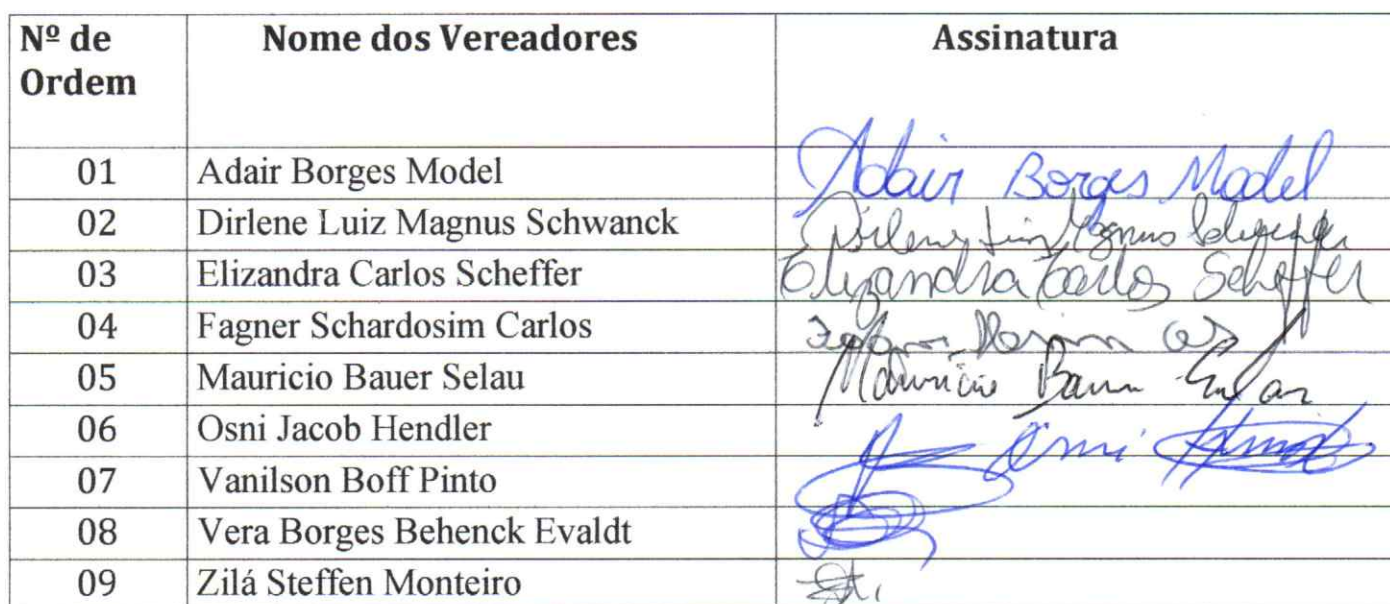 Nº de Ordem Nome dos Vereadores Assinatura
01 Adair Borges Model Adair Borges Model
02 Dirlene Luiz Magnus Schwanck Dirlene Luiz Magnus
03 Elizandra Carlos Scheffer Elizandra Carlos Scheffer
04 Fagner Schardosim Carlos
05 Mauricio Bauer Selau Mauricio Bauer Selau
06 Osni Jacob Hendler Osni
07 Vanilson Boff Pinto
08 Vera Borges Behenck Evaldt
09 Zilá Steffen Monteiro